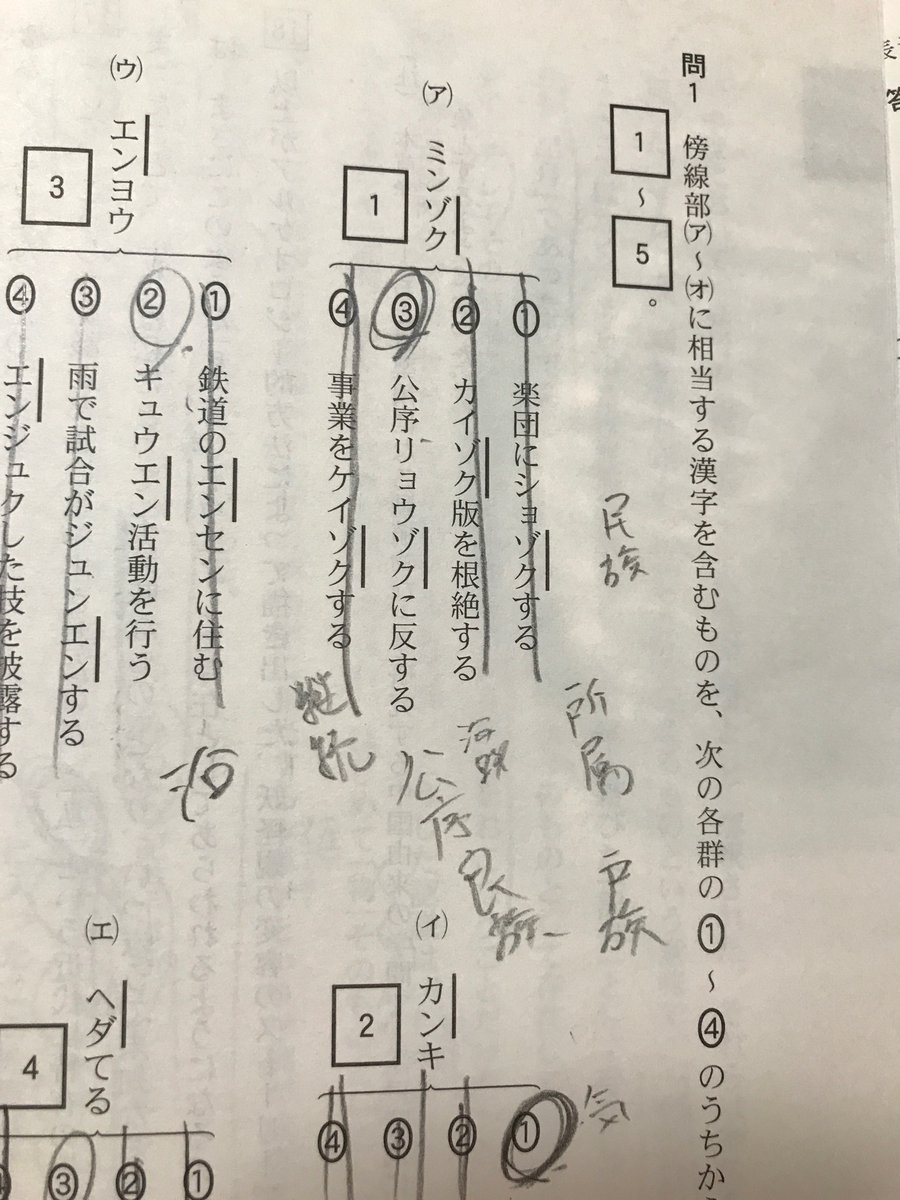 問1 傍線部㋐～㋔に相当する漢字を含むものを、次の各群の①～④のうちか
1 ～ 5 。
㋐ ミンゾク
1
① 楽団にショゾクする
② カイゾク版を根絶する
③ 公序リョウゾクに反する
④ 事業をケイゾクする
民族
所属
海賊
公序
良族
継続
戸族
㋑ カンキ
2
①
②
③
④
気
㋒ エンヨウ
3
① 鉄道のエンセンに住む
② キュウエン活動を行う
③ 雨で試合がジュンエンする
④ エンジュクした技を披露する
㋓ ヘダてる
4
①
②
③
答